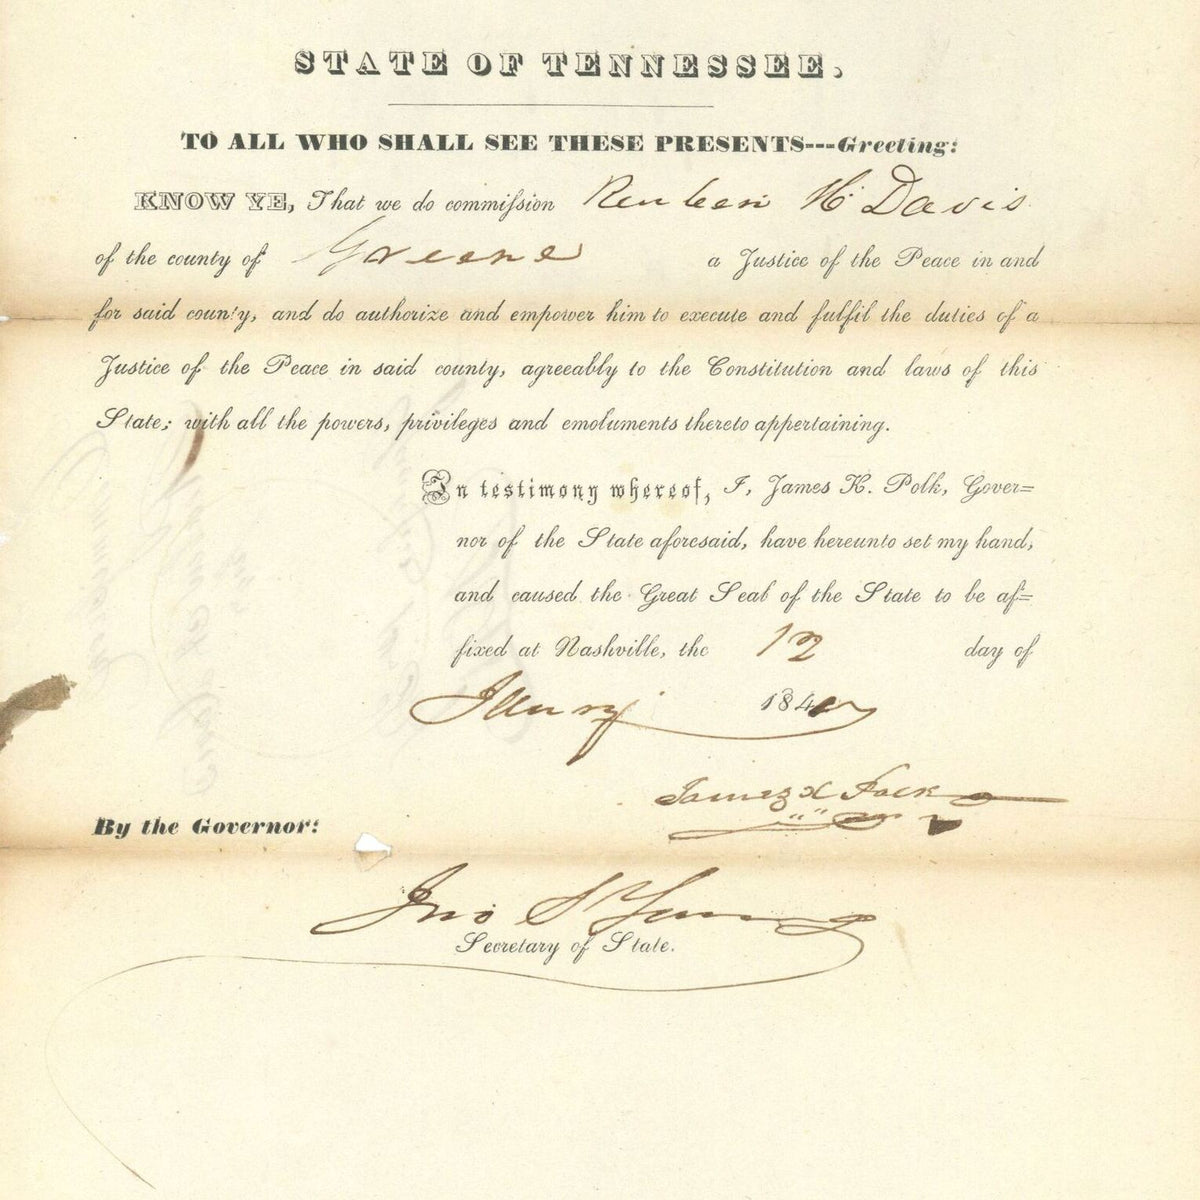 STATE OF TENNESSEE.
TO ALL WHO SHALL SEE THESE PRESENTS---Greeting:
KNOW YE, That we do commission Reuben H. Davis
of the county of Greene a Justice of the Peace in and
for said county, and do authorize and empower him to execute and fulfil the duties of a
Justice of the Peace in said county, agreeably to the Constitution and laws of this
State; with all the powers, privileges and emoluments thereto appertaining.
In testimony whereof, I, James K. Polk, Gover=
nor of the State aforesaid, have hereunto set my hand,
and caused the Great Seal of the State to be af=
fixed at Nashville, the 12 day of
184
James K Polk
By the Governor:
Jno S Young
Secretary of State.